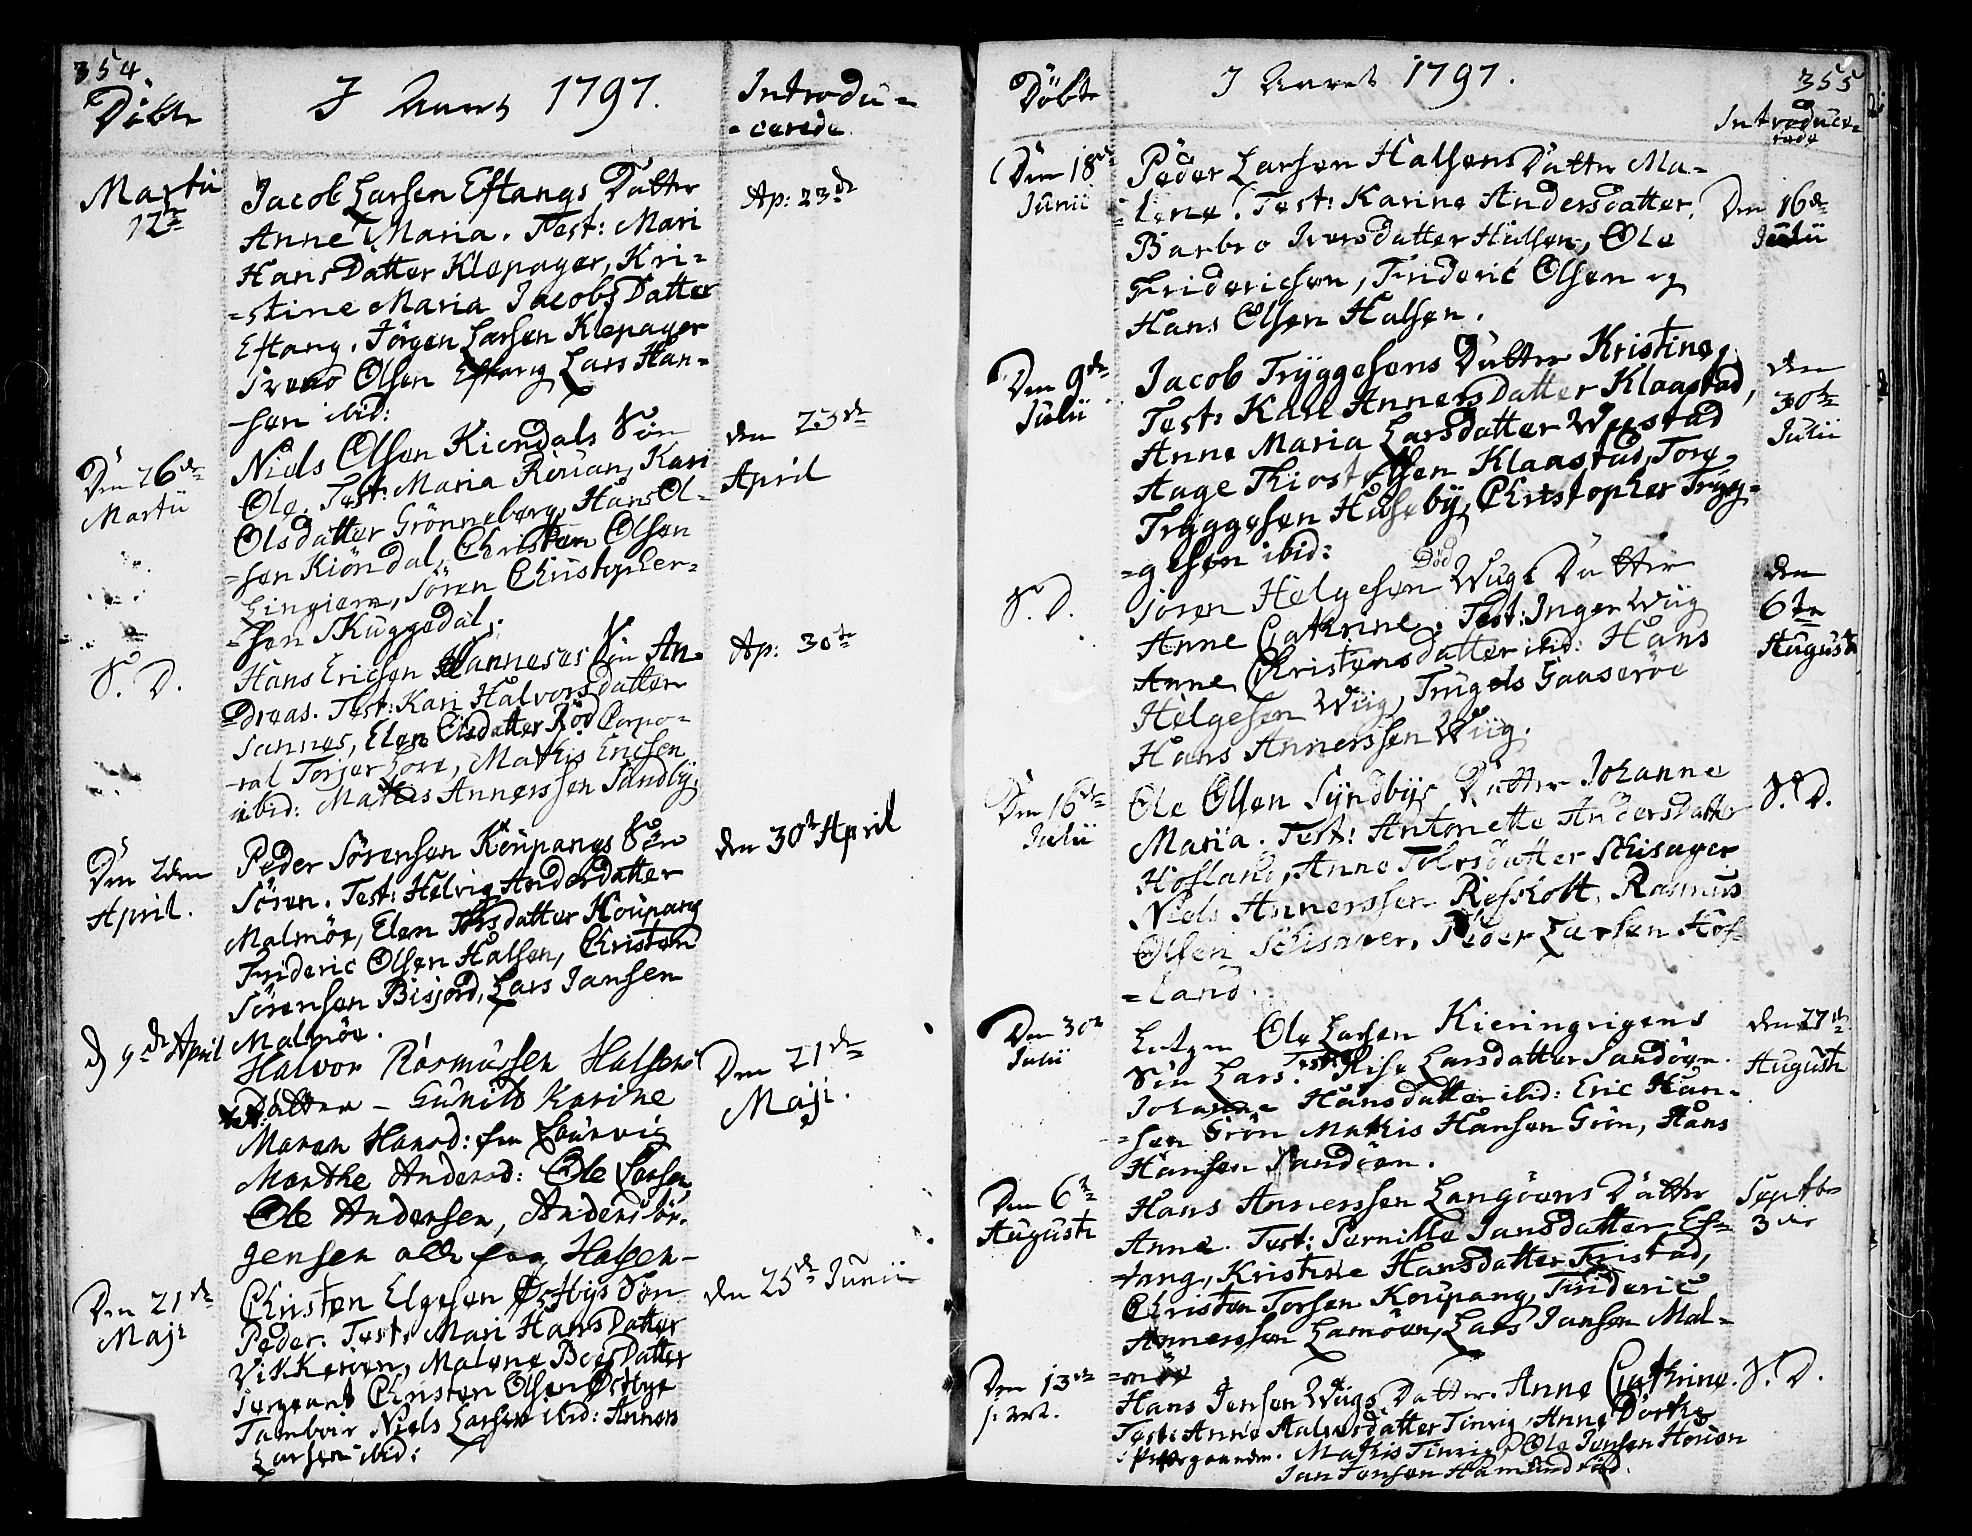 354.
Döbte
I Aaret 1797.
Introdu-
-cerede.
Martii
12te
Jacob Larsen Eftangs Datter
Anne Maria. Test: Mari
Hans Datter Klepager, Kri-
-stine Maria Jacobs Datter
Eftang. Jörgen Larsen Klepager
Svend Olsen Eftang Lars Han-
-sen ibid:
Ap: 23de
Den 26de
Martii
Niels Olsen Kiøndals Søn
Ole. Test: Maria Kari
Olsdatter Grönneberg, Hans Ol-
-sen Kiöndal, Christen Olsen
Lingiem, Sören Christopher-
-sen Skuggedal.
den 23de
April
S. D.
Hans Ericsen Sanneses Søn An-
-dreas. Test: Kari Halvorsdatter
Sannes, Elen Olsdatter Röd Corpo-
-ral Torjer Mathis Ericsen
ibid: Mathis Annerssen Sundby.
Ap: 30te
Den 2den
April.
Peder Sörensen Koupangs Sön
Sören. Test: Helvig Andersdatter
Malmöe, Elen Torsdatter Koupang
Frideric Olsen Halsen, Christen
Sörensen Bisjord, Lars Jansen
Malmöe.
den 30te April
d 9de April
Halvor Rasmussen Halsens
Datter - Gunild Karine
Maren Hansd: fra Laurvig
Marthe Andersd: Ole Larsen
Ole Andersen, Anders Jör-
gensen alle fra Halsen-
Den 21de
Maji.
Den 21de
Maji
Christen Elgesen Østbys Søn
Peder. Test: Mari Hans Datter
Vikkerøen, Malene Boes Datter
Sergeant Christen Olsen Østbye
Tamboir Niels Larsen ibid: Anners
Larsen ibid:
den 25de Junii
Döbte
I Aaret 1797.
355
Introduce-
rede
Den 18de
Junii
Peder Larsen Halsens Datter Ma-
-lene. Test: Karine Andersdatter,
Barbro Iversdatter Halsen, Ole
Fridericsen, Frideric Olsen og
Hans Olsen Halsen.
Den 16de
Julii
Den 9de
Julii
Jacob Tryggesens Datter Kristine,
Test: Kari Anners Datter Klaastad,
Anne Maria Larsdatter Weestad
Aage Thiostelsen Klaastad, Tore
Tryggesen Huseby, Christopher Tryg-
-gesen ibid:
den
30te
Julii
S. D.
Död
Sören Helgesen Wiigs Datter
Anne Cathrine. Test: Inger Wiig
Anne Christensdatter ibid: Hans
Helgesen Wiig, Trugels Gaaseröe
Hans Annerssen Wiig.
den
6te
Augusti
Den 16de
Julii
Ole Olsen Syndbys Datter Johanne
Maria. Test: Antonette Andersdatter
Hofland, Anne Tolvsdatter Schisager
Niels Annerssen Refsholt, Rasmus
Olsen Schisager, Peder Larsen Hof-
-land.
S. D.
Den 30te
Julii
Ole Larsen Kieringvigens
Søn Lars. Test: Lise Larsdatter Sandöen.
Johanne Hansdatter ibid: Eric Han-
-sen Grön Mathis Hansen Grön, Hans
Hansen Sandöen.
den 27de
Augusti
Den 6te
Augusti
Hans Annerssen Langöens Datter
Anne. Test: Pernille Jansdatter Ef-
-tang, Kristine Hansdatter
Christen Torsen Koupang, Frideric
Annerssen Lamöen, Lars Jansen Mal-
-möe
Septbr
3die
Den 13de
Hans Jensen Wiigs Datter. Anne Cathrine.
Test: Anne Halvorsdatter Tinvig, Anne Dorthe
Mathis Tinvig, Ole Jensen
Jan Jensen
S. D.